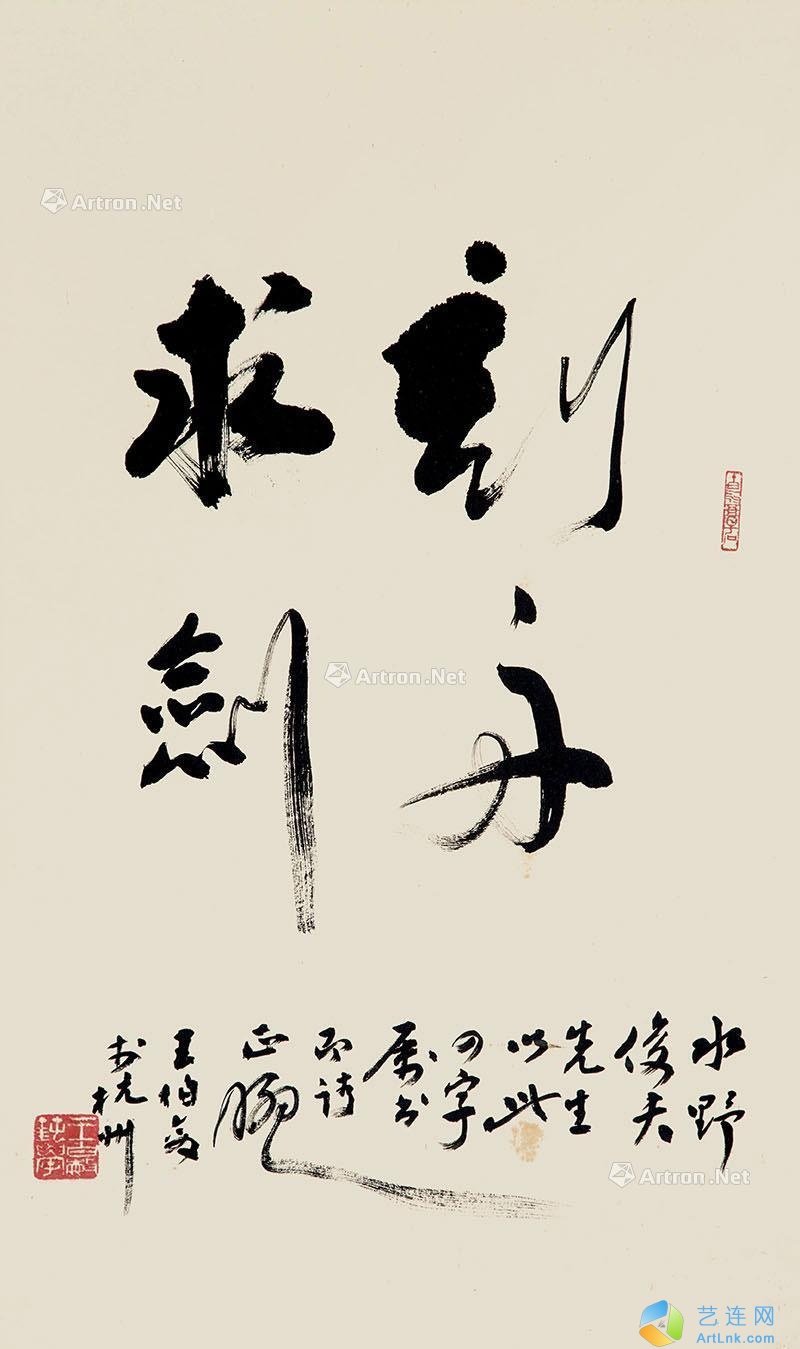 Artron.Net
刻舟
求劍
Artron.Net
水野
俊夫
先生
以此
四字
属书
请
正
王伯敏
书杭州
Artron.Net
艺连网
ArtLnk.com